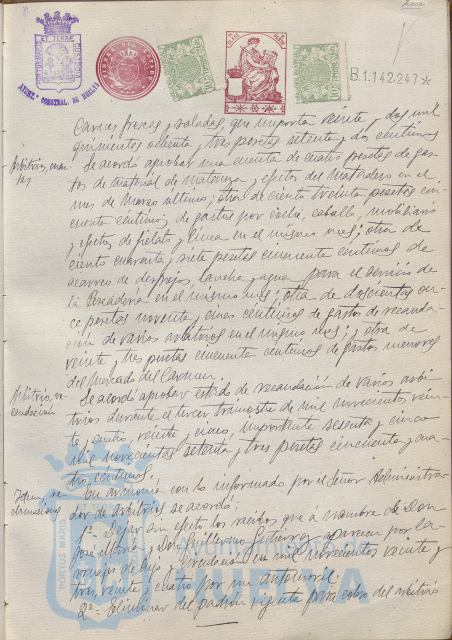 B.1.142.247*
PORTUS MARIS ET TERRAE CUSTODIA
AYUNT.º CONSTNAL. DE HUELVA
Carnes frescas y saladas, que importa veinte y dos mil
quinientas ochenta y tres pesetas setenta y dos centimos
Arbitrios,
Se acordó aprobar una cuenta de cuatro pesetas de gas-
tos de material de matanza y efectos del Matadero en el
mes de Marzo ultimo; otra de ciento treinta pesetas cin-
cuenta centimos de gastos por coche, caballo, mobiliario
y efectos de fielato y linea en el mismo mes; otra de
ciento cuarenta y siete pesetas cincuenta centimos de
acarreo de despojos, lancha y agua para el servicio de
la Pescaderia en el mismo mes; otra de doscientas on-
ce pesetas noventa y cinco centimos de gastos de recauda-
cion de varios arbitrios en el mismo mes; y otra de
veinte y tres pesetas cincuenta centimos de gastos menores
del Mercado del Carmen.
Arbitrio, re-
caudación
Se acordó aprobar estado de recaudación de varios arbi-
trios durante el tercer trimestre de mil novecientos vein-
te y cuatro, veinte y cinco, importante sesenta y cinco
mil novecientas setenta y tres pesetas cincuenta y cua-
tro centimos.
Idem, re-
clamaciones
En armonia con lo informado por el Señor Administra-
dor de Arbitrios se acordó:
1º- Dejar sin efecto los recibos que á nombre de Don
José María y Don Guillermo Gutierrez aparecen por
en mil novecientos veinte y
tres, veinte y cuatro por
2º- Eliminar del padrón vigente para cobro del arbitrio
Ayuntamiento de
HUELVA
PORTUS MARIS